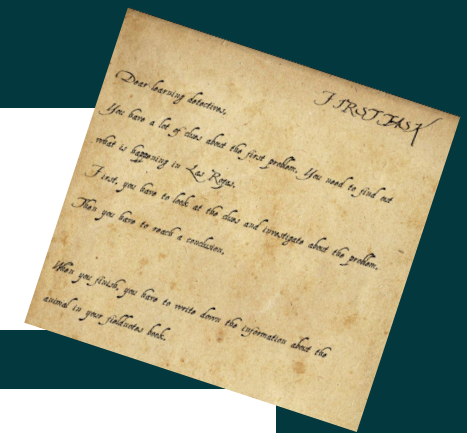 FIRST TASK
Dear learning detectives,
You have a lot of clues about the first problem. You need to find out
what is happening in Las Rozas.
First, you have to look at the clues and investigate about the problem.
Then you have to reach a conclusion.
When you finish, you have to write down the information about the
animal in your fieldnotes book.